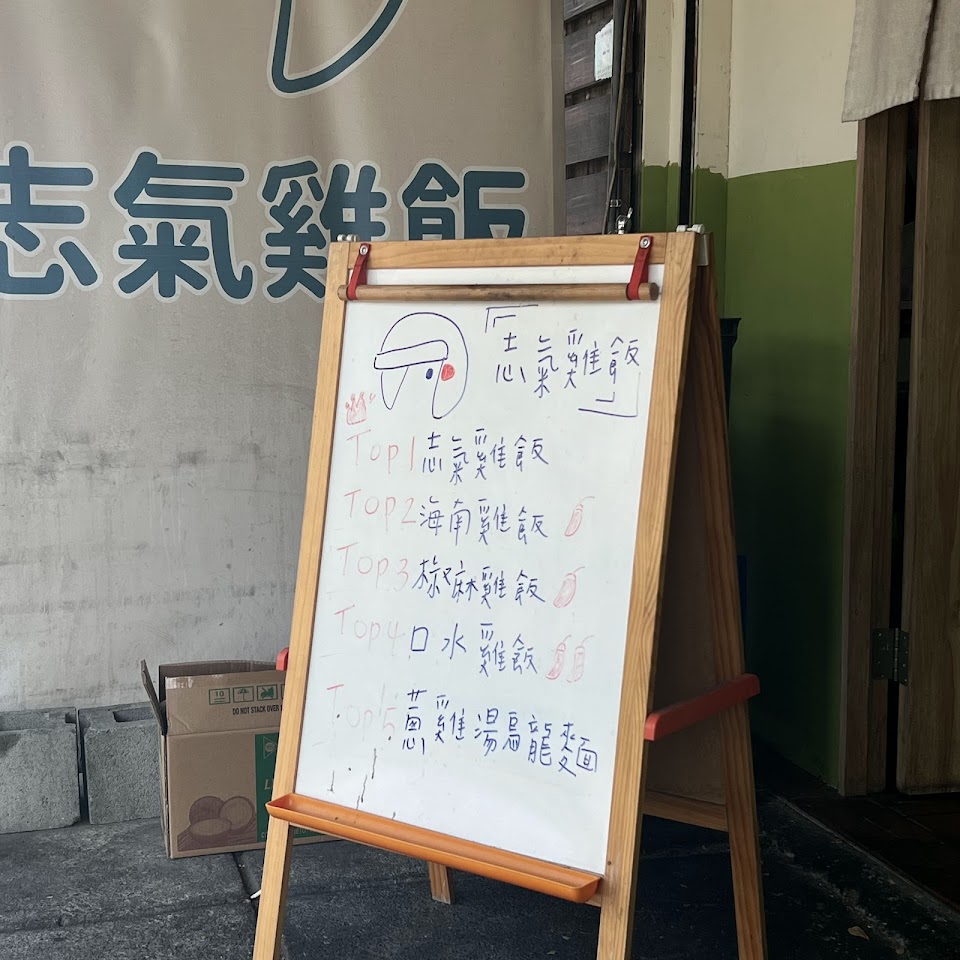 志氣雞飯
「志氣雞飯」
Top1志氣雞飯
Top2海南雞飯
Top3椒麻雞飯
Top4口水雞飯
Top5蔥雞湯烏龍麵
10
DO NOT STACK OVER